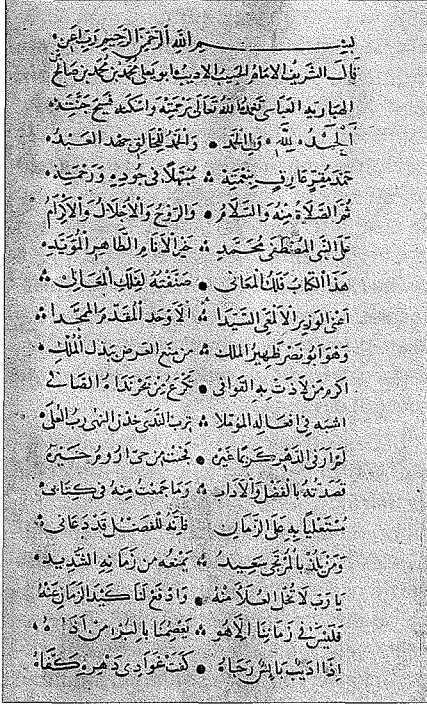 بسم الله الرحمن الرحيم
قال الشريف الامام ابو يعلى محمد بن محمد بن صالح
الهبارية العباسي تغمده الله تعالى برحمته واسكنه فسيح جنته
الحمد لله ولي الحمد والحمد للخالق جهد العبد
حمد مقر عارف بنعمته مبتهلا في جوده ورحمته
ثم الصلاة منه والسلام والروح والاجلال والاكرام
على النبي المصطفى محمد خير الانام الطاهر المؤيد
هذا الكتاب فلك المعاني صنفته لفلك
اعنى الوزير الالمعى السيدا الاوحد المقدم الممجدا
وهو ابو نصر ظهير الملك من منع العرض ببذل الملك
اكرم من لاذت به القوافي تكرع من بحر نداه الضافي
اشبه في افعاله المؤملا ترب الندى خدن النهى رب العلى
لم ار في الدهر كريما غيره
قصدته بالفضل والآداب وما جمعت منه في كتابي
مستعليا به على الزمان فانه للفضل قد دعاني
ومن يلذ بالمرتجى سعيد يمنعه من زمانه الشديد
يا رب لا تخل العلا منه وادفع لنا كيد الزمان عنه
فليس في زماننا الا هو يعصمنا بالبر من اذاه
اذا اديب بائس رجاه كفت عوادي دهره كفاه